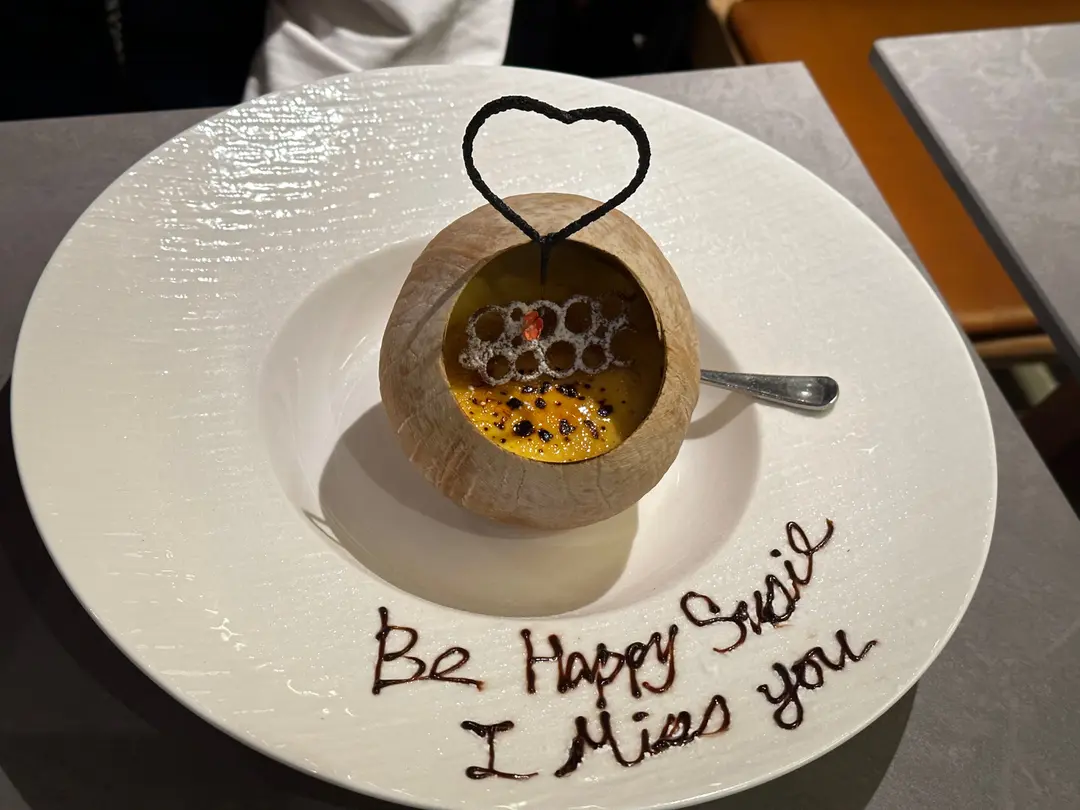 Be Happy Susie
I Miss you